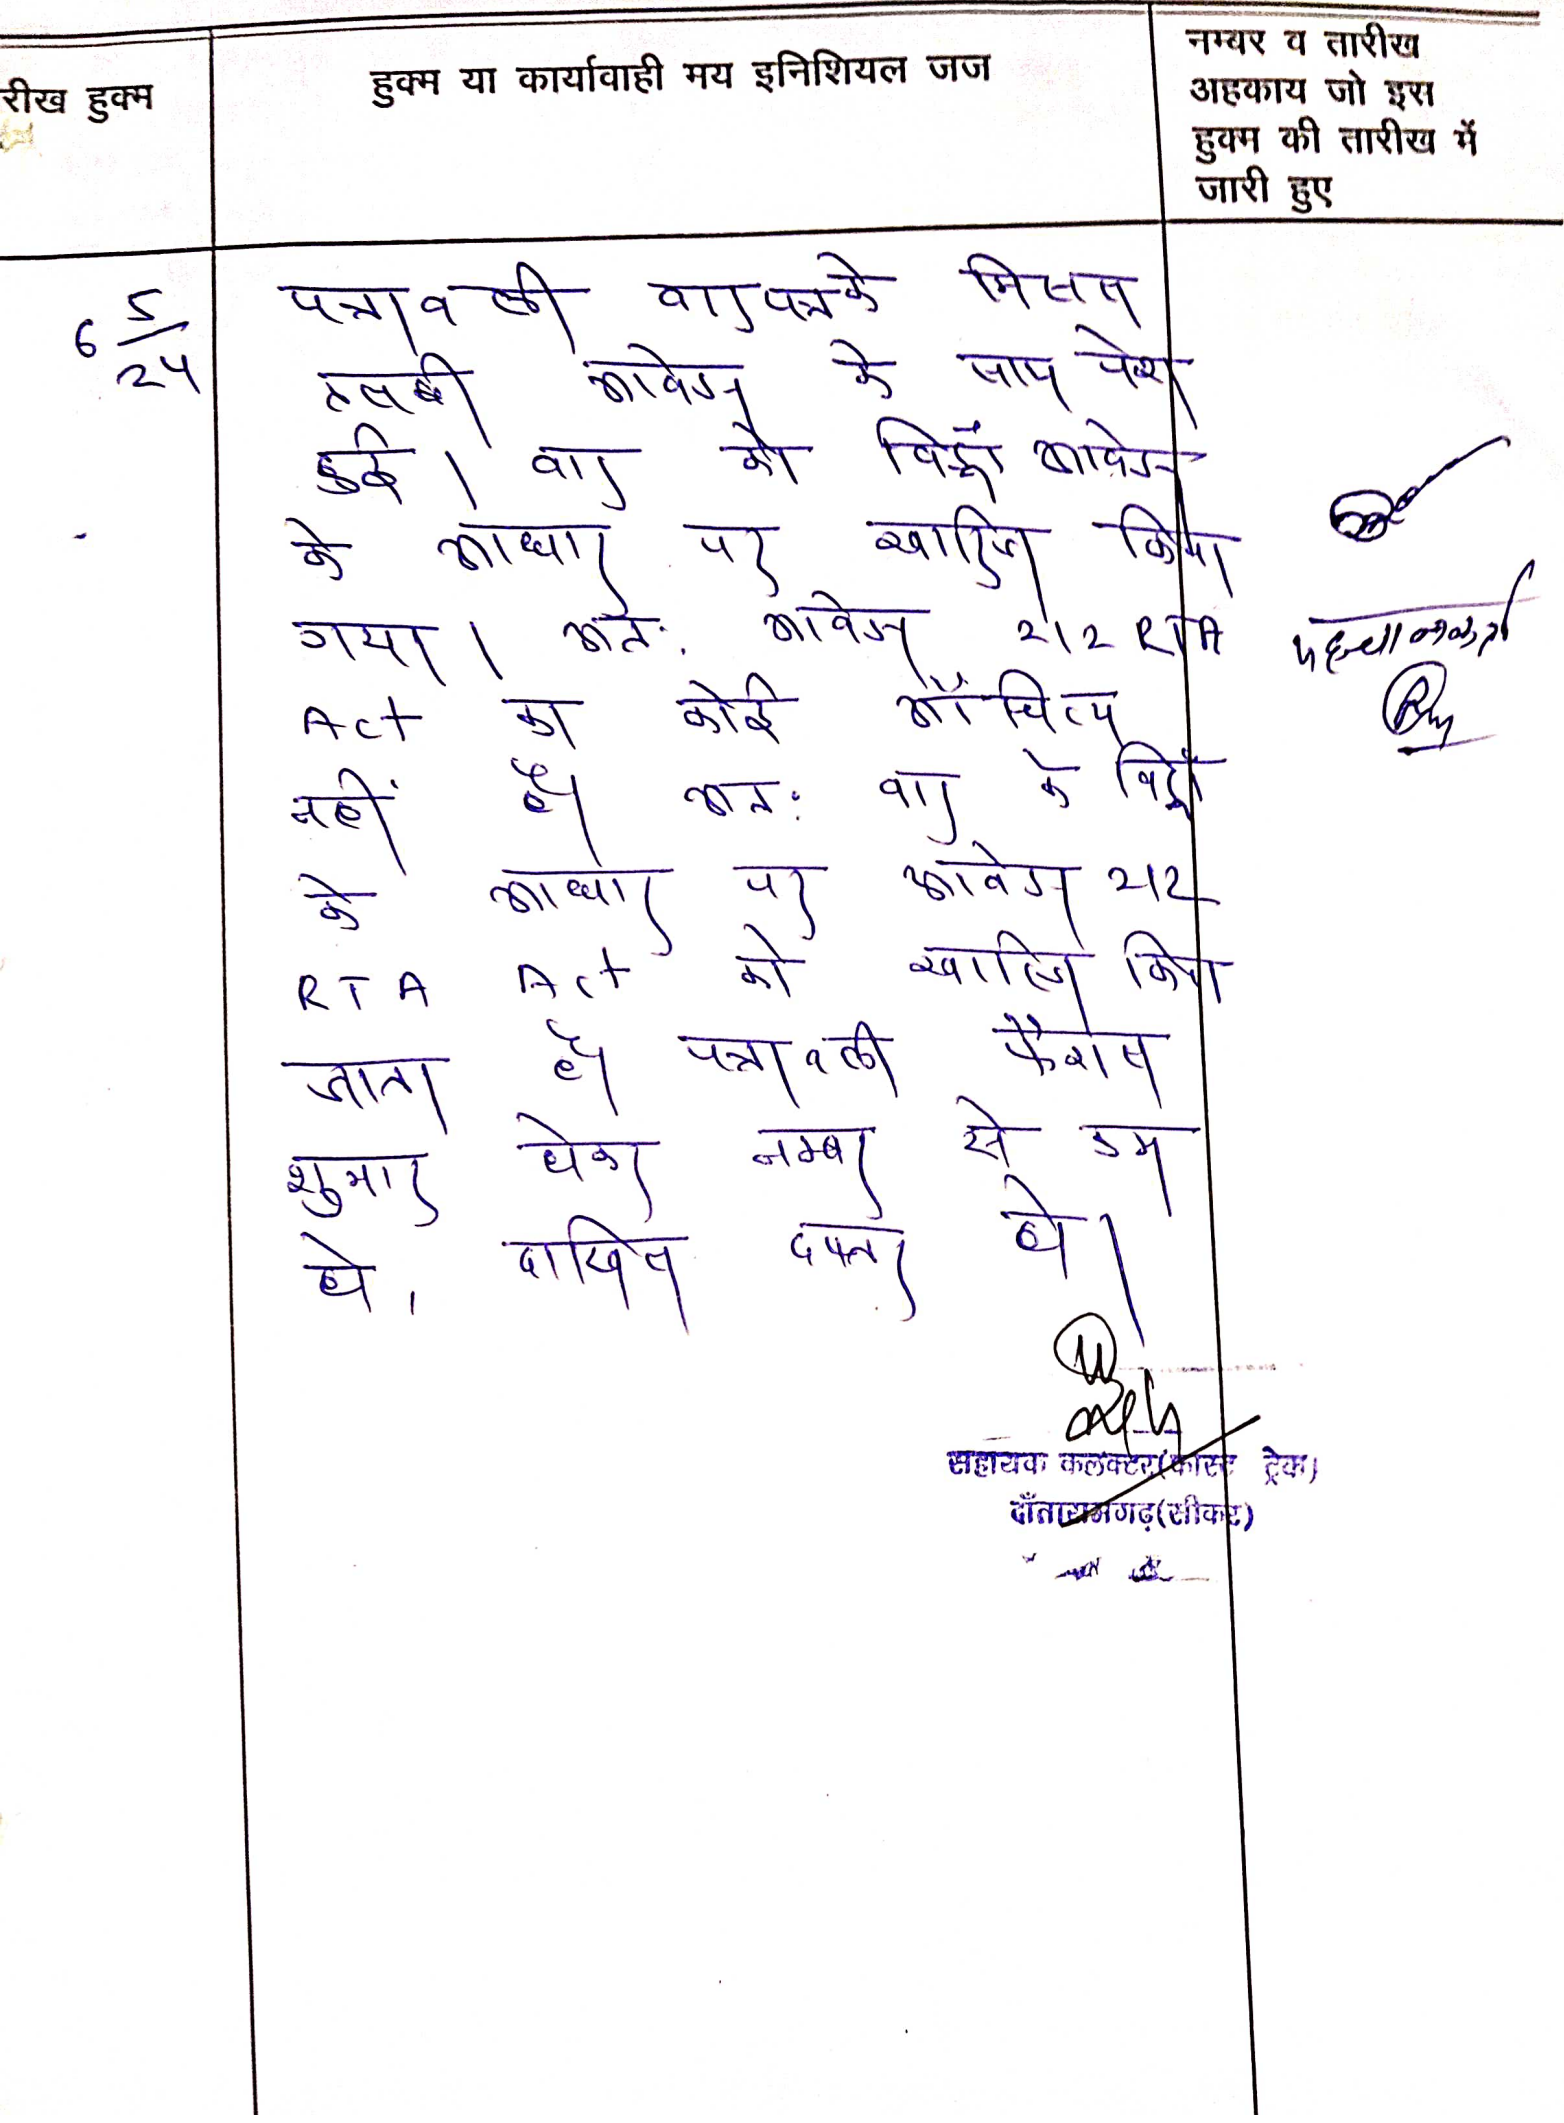 रीख हुक्म
हुक्म या कार्यावाही मय इनिशियल जज
नम्वर व तारीख
अहकाय जो इस
हुक्म की तारीख में
जारी हुए
6 5/24
पत्रावली वाद पत्र के मिसल
तलबी आवेदन के साथ पेश
हुई। वाद को विड्रॉ आवेदन
के आधार पर खारिज किया
गया। अत: आवेदन 212 RTA
Act का कोई औचित्य
नहीं है। अत: वाद के विड्रॉ
के आधार पर आवेदन 212
RTA Act को खारिज किया
जाता है। पत्रावली फैशल
शुमार होकर नम्बर से कम
हो, दाखिल दफ्तर हो।
पहचानकर्ता
सहायक कलक्टर(फास्ट ट्रेक)
दाँतारामगढ़(सीकर)